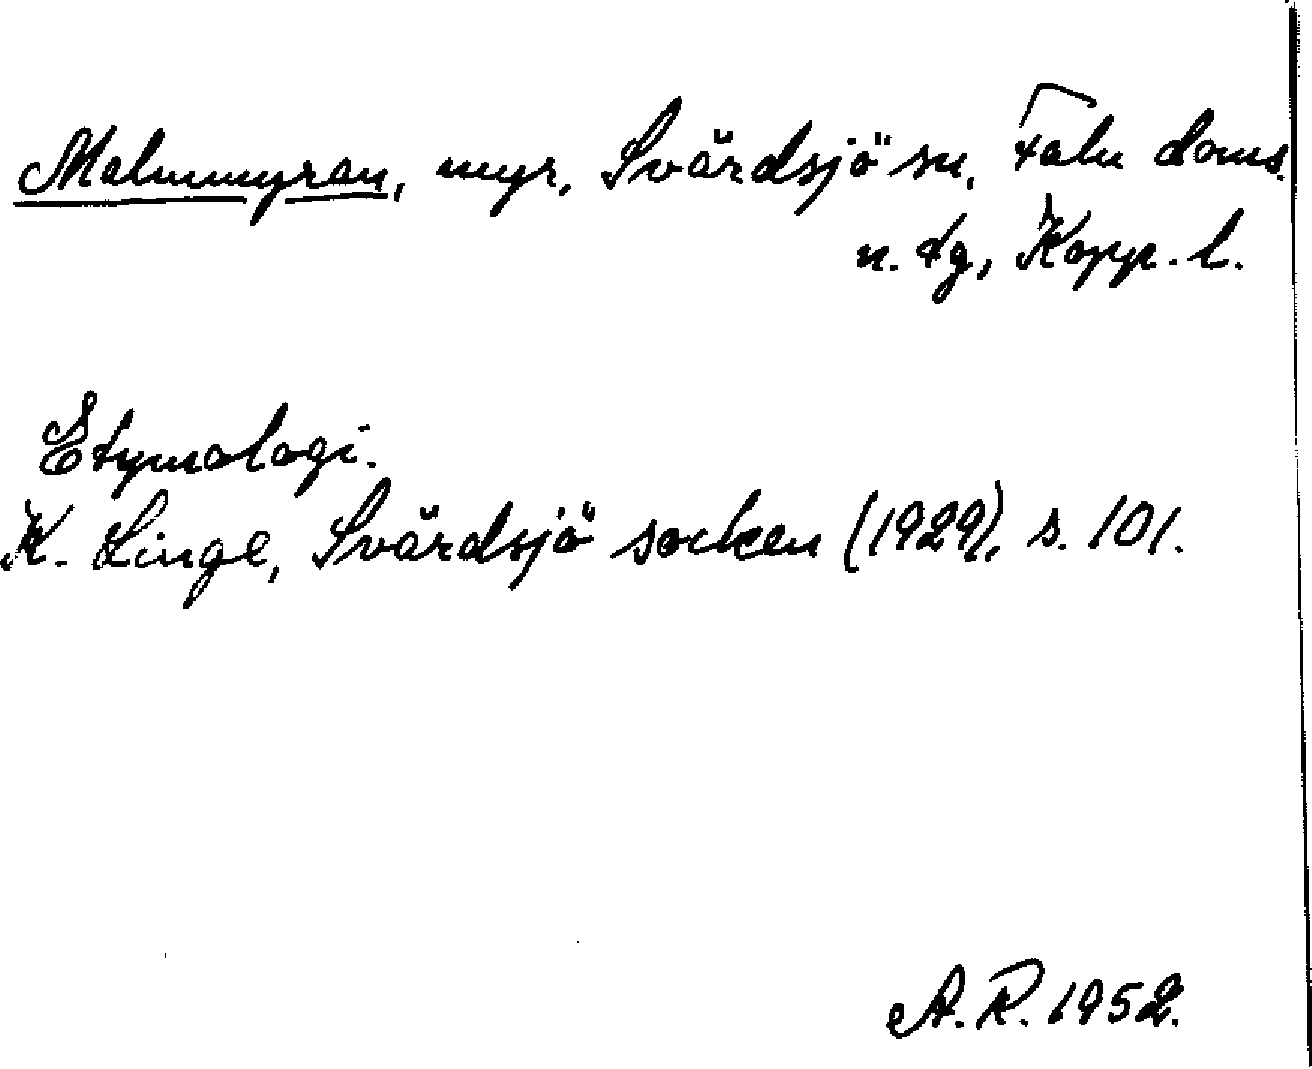 Malmmyran, myr, Svärdsjö sn, Falu doms.
n. tg, Kopp. l.
Etymologi.
K. Linge, Svärdsjö socken (1929), s. 101.
A. R. 1952.